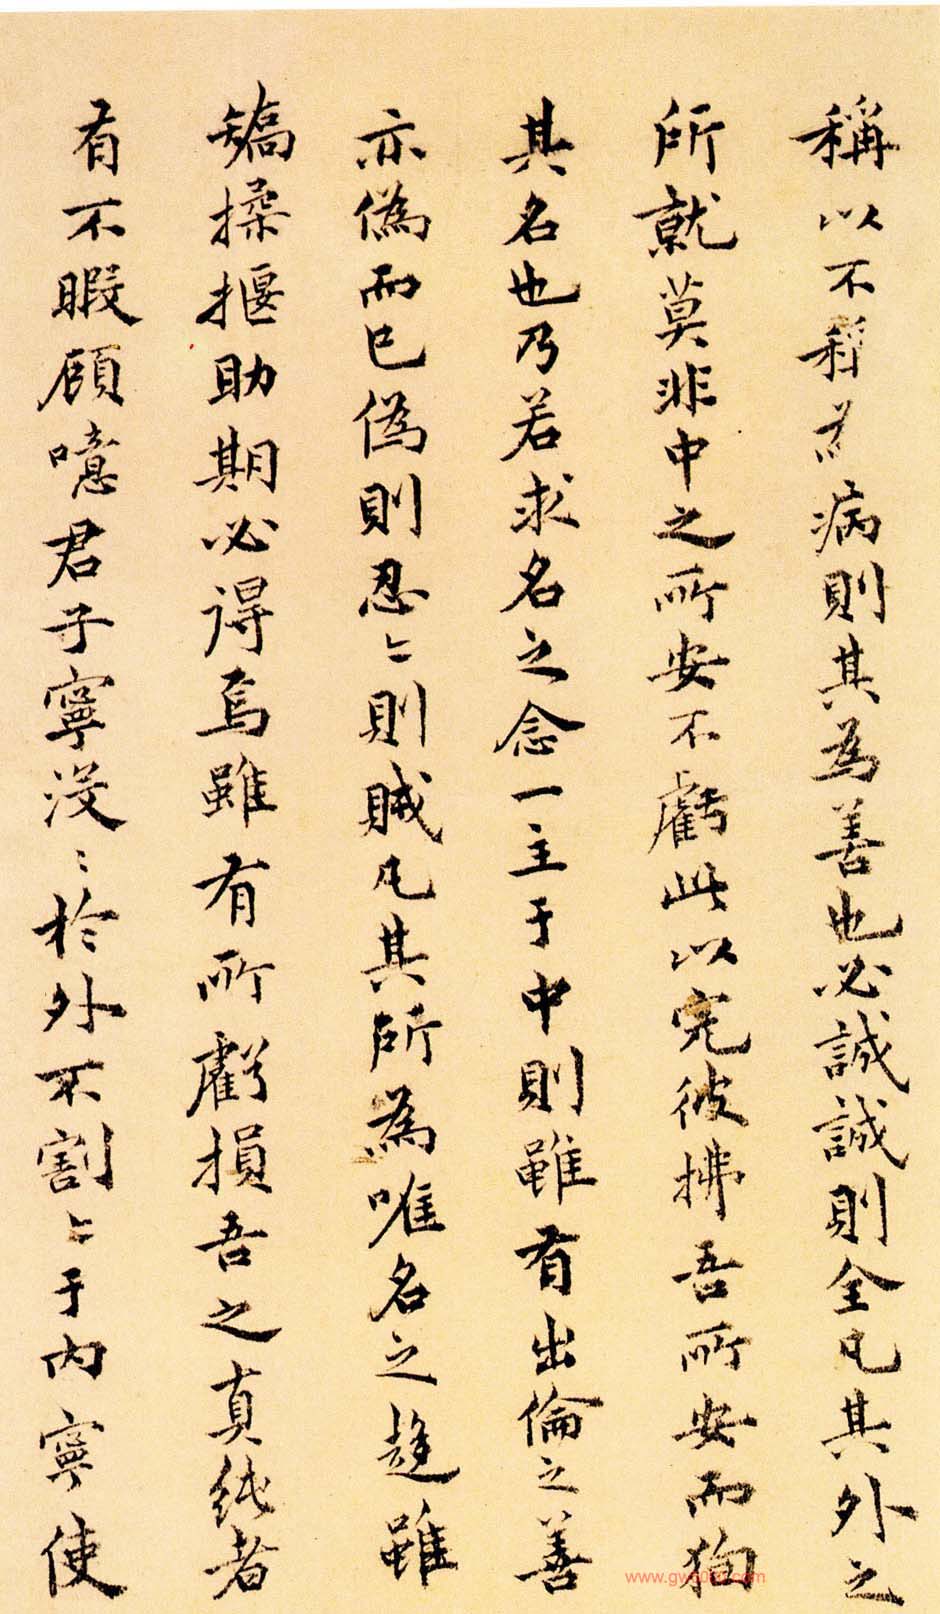 稱以不稱為病則其為善也必誠誠則全凡其外之
所就莫非中之所安不虧此以完彼拂吾所安而狥
其名也乃若求名之念一主于中則雖有出倫之善
亦偽而已偽則忍〻則賊凡其所為唯名之趍雖
矯揉揠助期必得焉雖有所虧損吾之真純者
有不暇顧噫君子寧没〻於外不割〻于内寧使